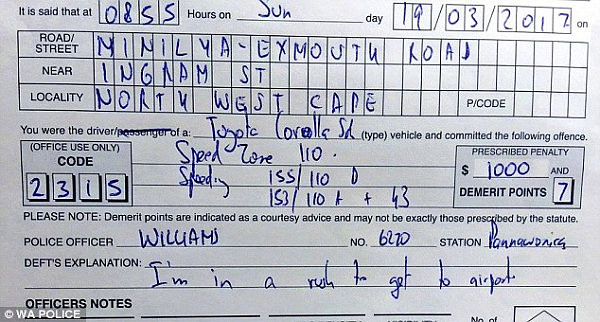 It is said that at 0855 Hours on Sun day 19/03/2017 on
ROAD/STREET MINILYA-EXMOUTH ROAD
NEAR INGRAM ST
LOCALITY NORTH WEST CAPE P/CODE
You were the driver/passenger of a: Toyota Corolla Sd (type) vehicle and committed the following offence.
(OFFICE USE ONLY) CODE 2315
Speed Zone 110.
Speeding 155/110 D
153/110 A + 43
PRESCRIBED PENALTY
$ 1000 AND
DEMERIT POINTS 7
PLEASE NOTE: Demerit points are indicated as a courtesy advice and may not be exactly those prescribed by the statute.
POLICE OFFICER WILLIAMS NO. 6270 STATION Pannawonica
DEFT'S EXPLANATION: I'm in a rush to get to airport
OFFICERS NOTES
No. of
© WA POLICE